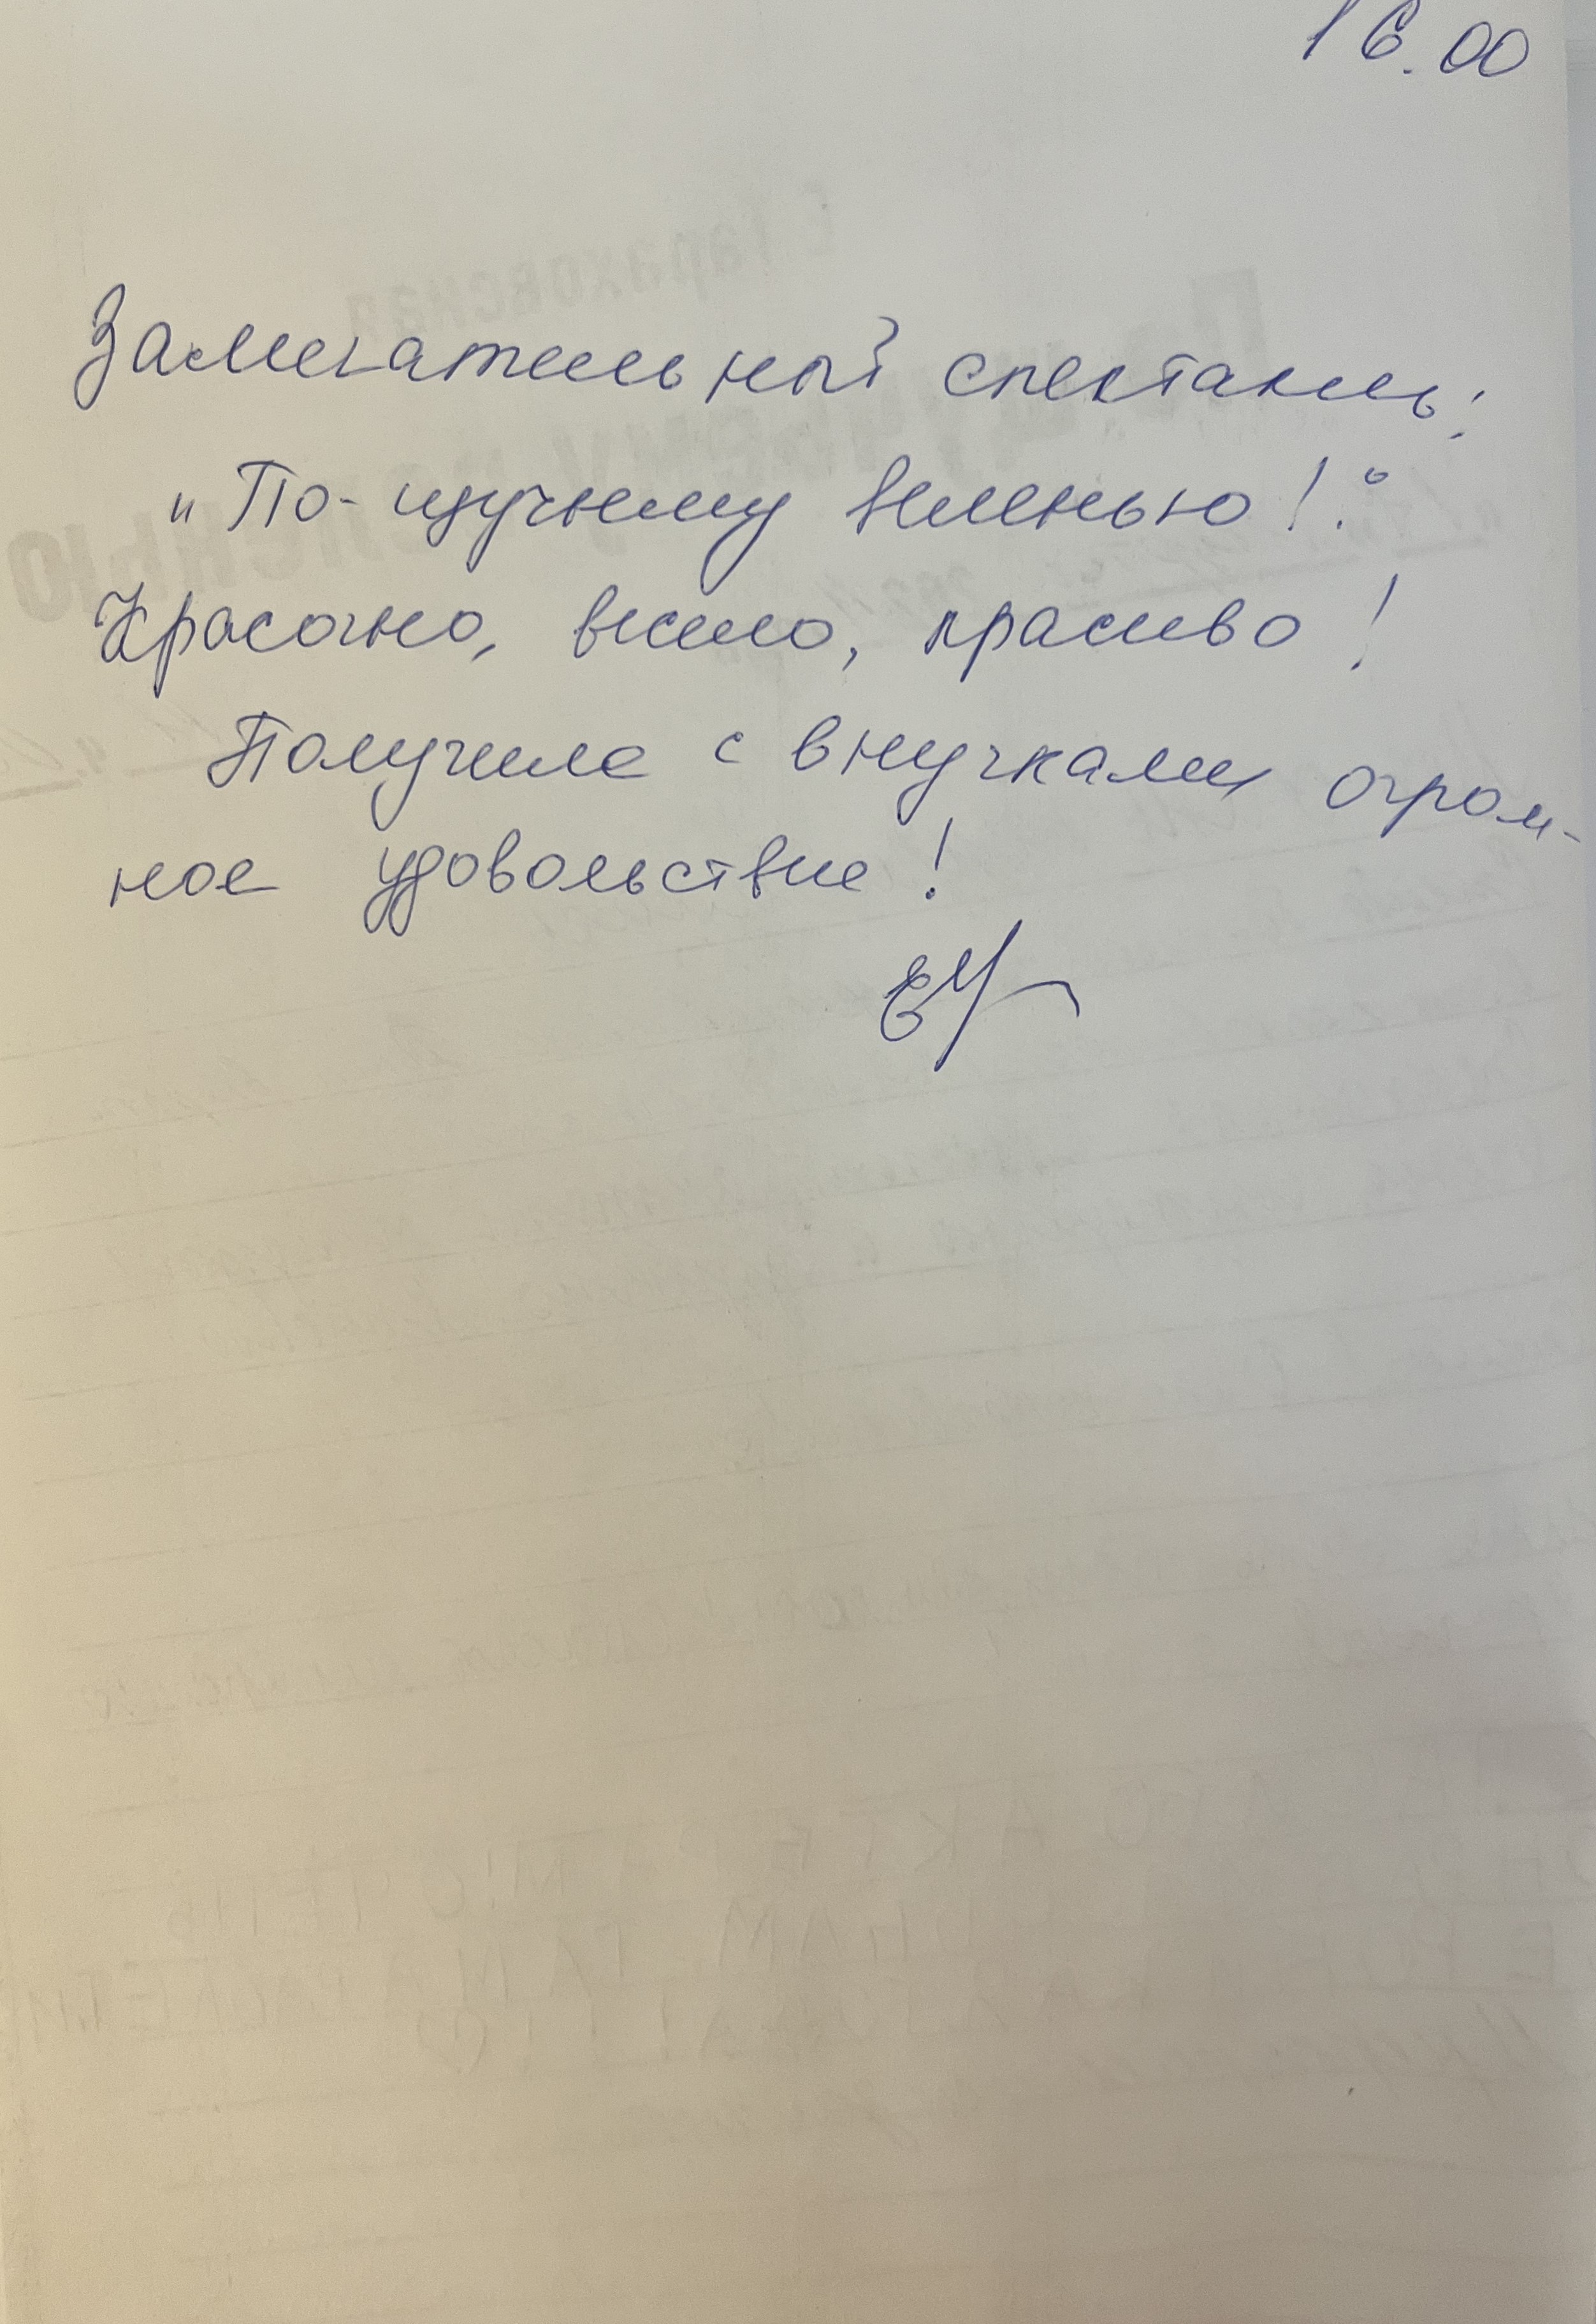 16.00
Замечательный спектакль:
"По-щучьему веленью!"
Красочно, весело, красиво!
Получила с внучками огром-
ное удовольствие!